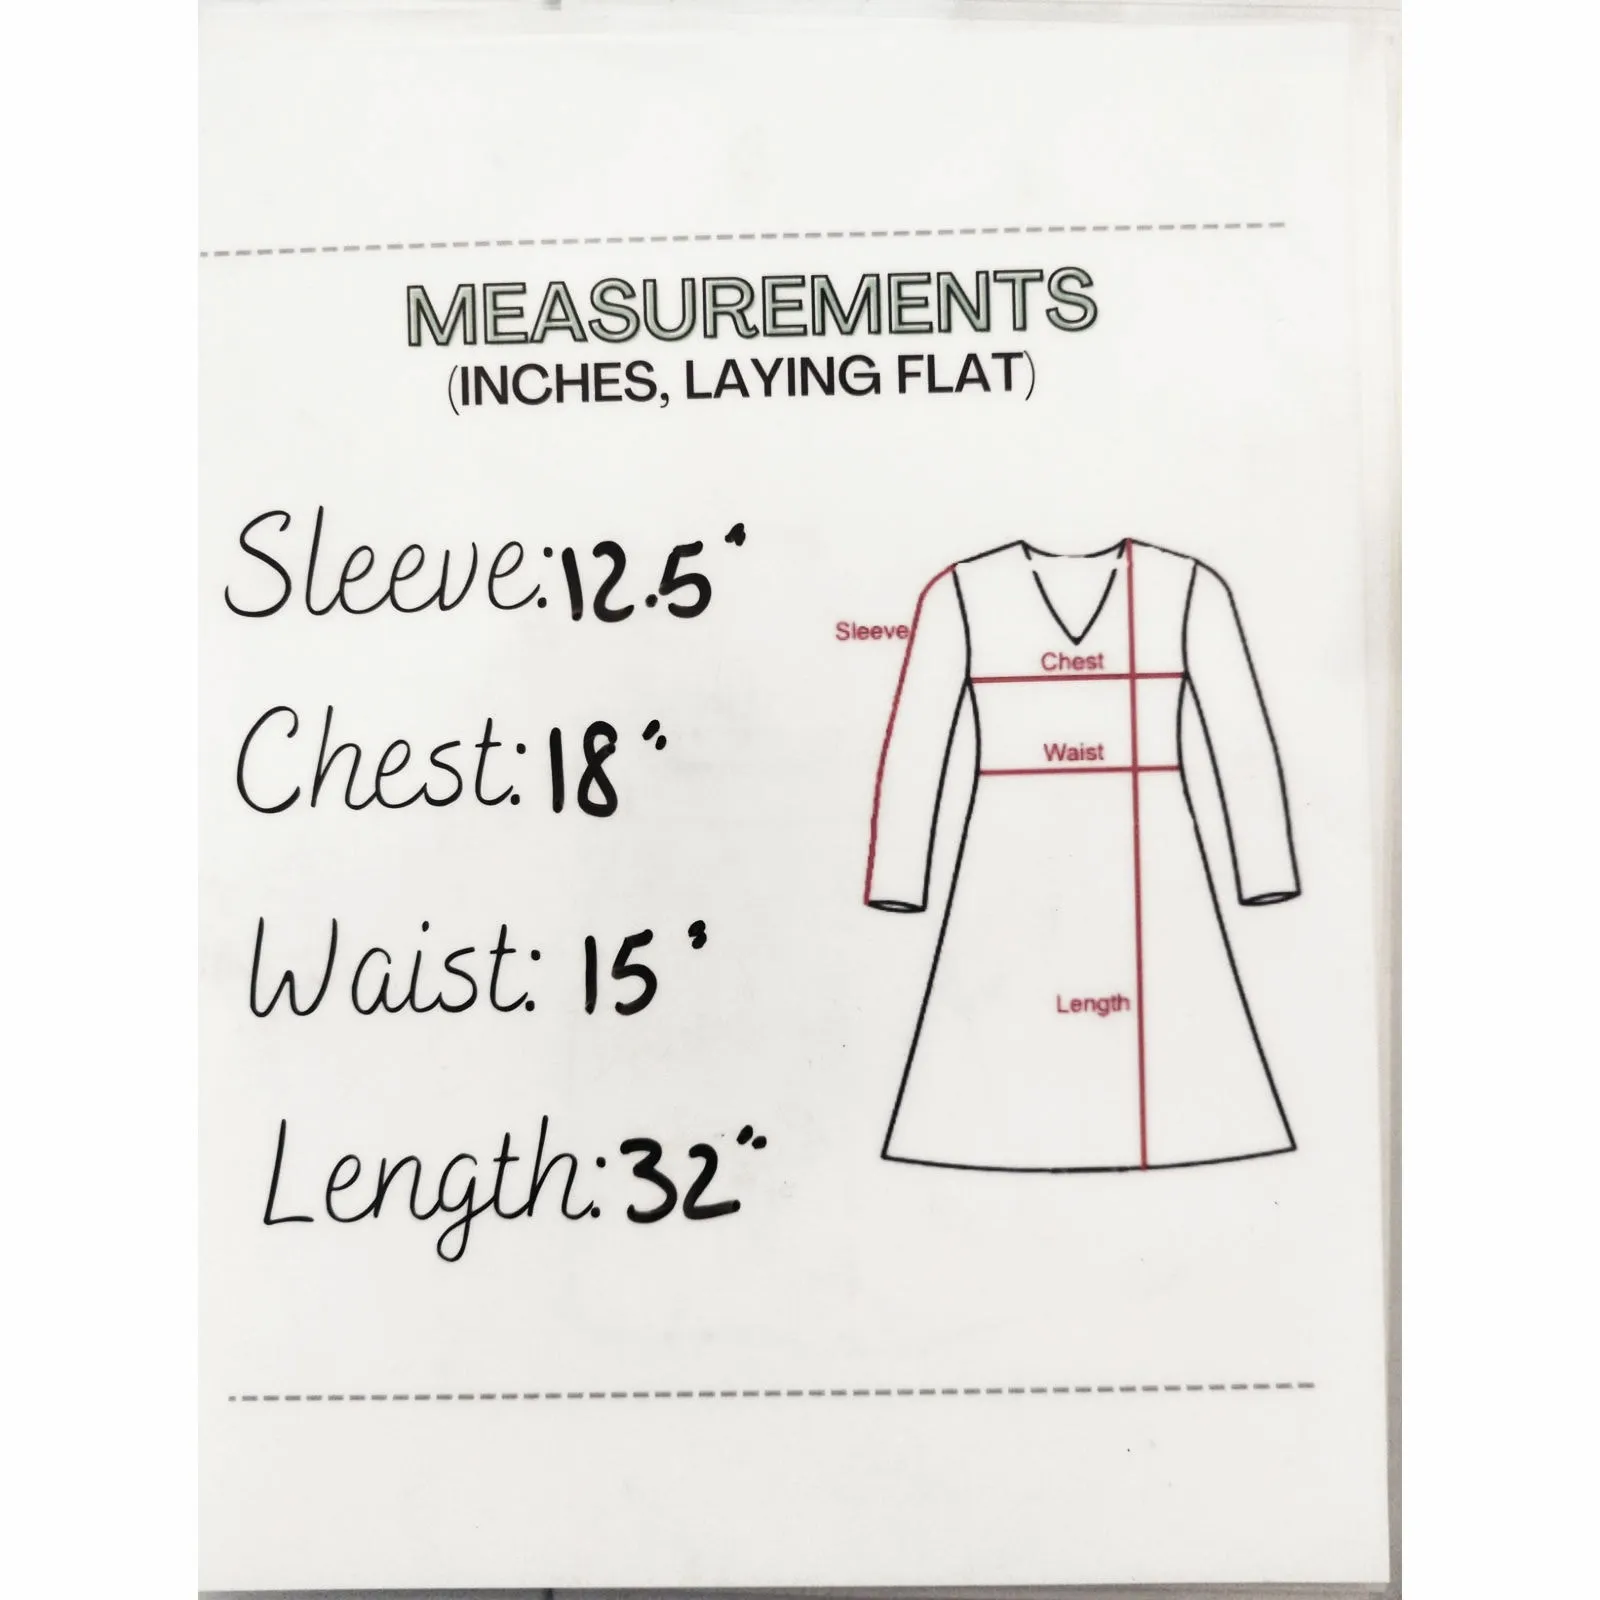 MEASUREMENTS
(INCHES, LAYING FLAT)
Sleeve: 12.5"
Chest: 18"
Waist: 15"
Length: 32"
Sleeve
Chest
Waist
Length